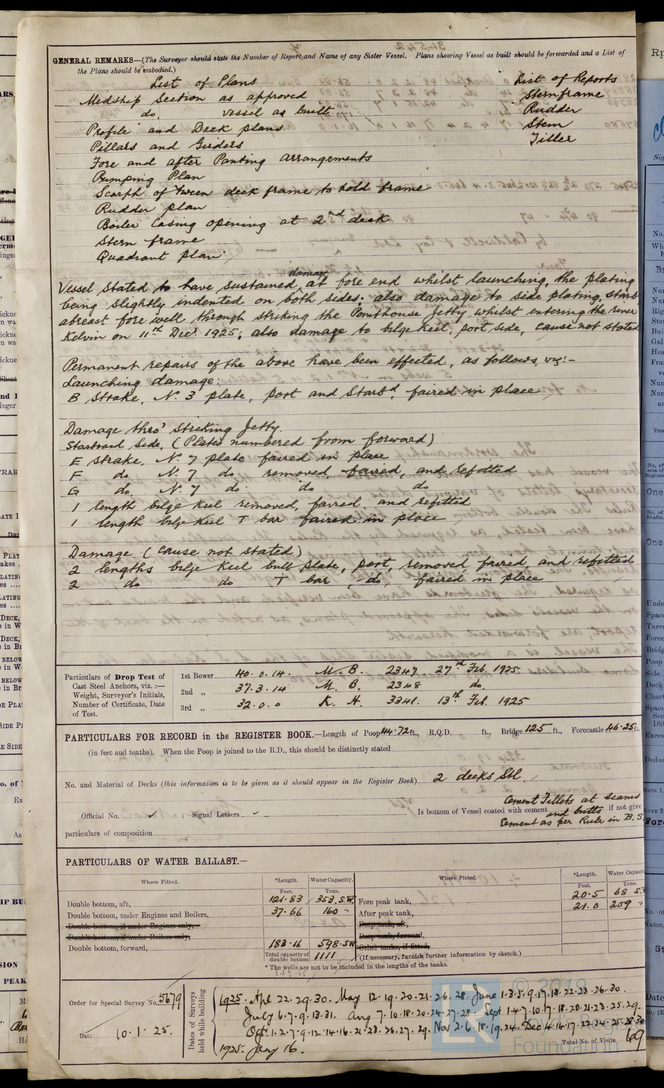 GENERAL REMARKS—(The Surveyor should state the Number of Report and Name of any Sister Vessel. Plans shewing Vessel as built should be forwarded and a List of
the Plans should be embodied.)
List of Plans List of Reports
Midship Section as approved Sternframe
do. vessel as built Rudder
Profile and Deck plans Stem
Pillars and Girders Tiller
Fore and after Panting arrangements
Pumping Plan
Scarph of tween deck frame to hold frame
Rudder plan
Boiler Casing opening at 2nd deck
Stern frame
Quadrant plan
Vessel stated to have sustained damage at fore end whilst launching, the plating
being slightly indented on both sides: also damage to side plating, starb
abreast fore well through striking the Pointhouse Jetty whilst entering the river
Kelvin on 11th Decr 1925, also damage to bilge keel, port side, cause not stated
Permanent repairs of the above have been effected, as follows, viz:-
Launching damage.
B Strake, No. 3 plate, port and Starbd faired in place
Damage thro' striking Jetty.
Starboard Side. (Plates numbered from forward)
E strake, No. 7 plate faired in place
F do No. 7 do, removed, faired, and refitted
G do. No. 7 do. do do
1 length bilge keel removed, faired and refitted
1 length bilge keel T bar faired in place
Damage (cause not stated)
2 lengths bilge keel bulb plate, port, removed faired and refitted
2 do do T bar, do, faired in place
Particulars of Drop Test of
Cast Steel Anchors, viz.:—
Weight, Surveyor's Initials,
Number of Certificate, Date
of Test.
1st Bower 40.0.14. M. B. 2347. 27th Feb. 1925
2nd „ 37.3.14 M. B. 2348 do.
3rd „ 32.0.0 K. H. 3341. 13th Feb. 1925
PARTICULARS FOR RECORD in the REGISTER BOOK.—Length of Poop 44.72 ft., R.Q.D. ft., Bridge 125 ft., Forecastle 46.25 ft.
(in feet and tenths). When the Poop is joined to the B.D., this should be distinctly stated
No. and Material of Decks (this information is to be given as it should appear in the Register Book) 2 decks Stl
Official No. ; Signal Letters Is bottom of Vessel coated with cement if not give
Cement Fillets at seams
and butts.
Cement as per Rule in B.S.
particulars of composition
PARTICULARS OF WATER BALLAST.—
Where Fitted. *Length. Water Capacity. Where Fitted. *Length. Water Capacity
Feet. Tons. Feet. Tons.
Double bottom, aft, 121.83 353 S.W. Fore peak tank, 20.5 68 S.
Double bottom, under Engines and Boilers, 37.66 160 " After peak tank, 21.0 209 "
Double bottom, if under Engines only, Deep tank, aft,
Double bottom, if under Boilers only, Deep tank, forward,
Double bottom, forward, 183.16 598 S.W Other tanks, if fitted,
Total capacity of double bottom 1111 (If necessary, furnish further information by sketch.)
* The wells are not to be included in the lengths of the tanks.
Order for Special Survey No. 5679
Date 10.1.25.
Dates of Surveys held while building
1925. Apl 22.29.30. May 12.19.20.21.26.28. June 1.3.5.9.17.18.22.23.26.30.
July 6.7.9.13.31. Aug 7.10.18.20.24.27.28. Sept 1.4.7.10.17.18.20.21.23.25.29.
Oct 1.2.7.9.12.14.16.21.23.26.27.29. Nov 2.6.18.19.24. Dec 4.14.17.22.24.25.28.30
1925. Jany 16.
Total No. of Visits 69
© 2019
LR
Foundation